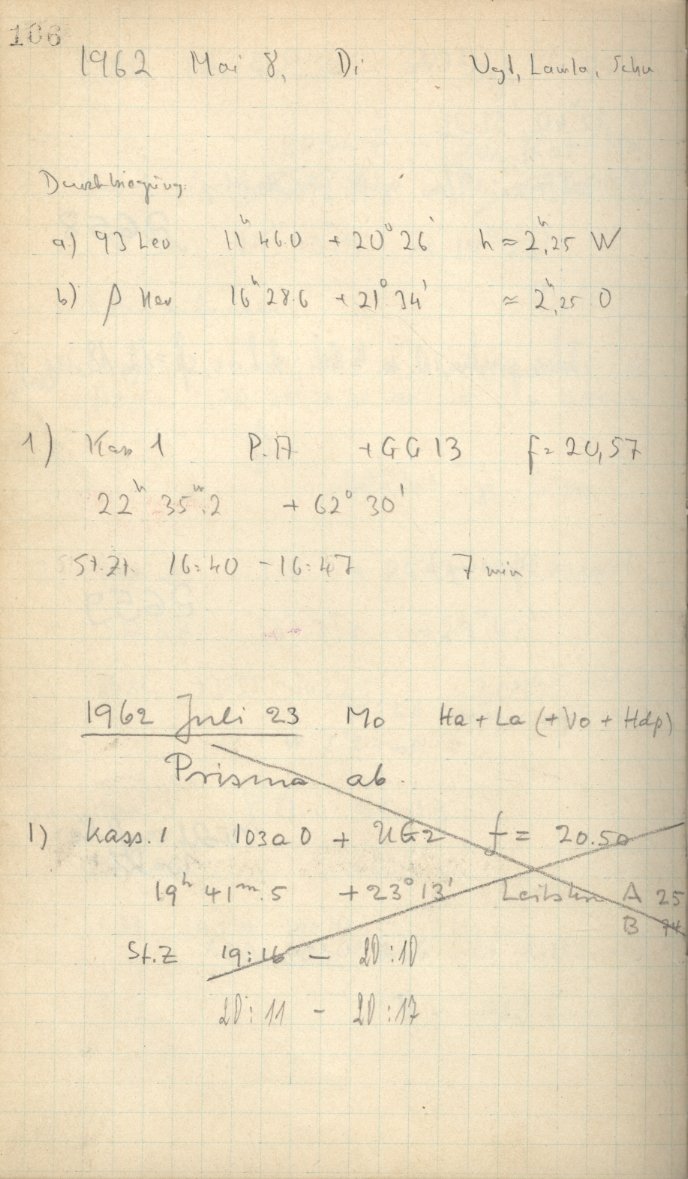 106
1962 Mai 8, Di Vgl, Lawlo, Schu
Durchbiegung
a) 93 Leo 11h 46.0 + 20° 26' h ≈ 2h,25 W
b) β Her 16h 28.6 + 21° 34' ≈ 2h,25 O
1) Kass 1 P. A + GG 13 f = 20,57
22h 35m.2 + 62° 30'
St.Zt. 16:40 - 16:47 7 min
1962 Juli 23 Mo Ha + La (+ Vo + Hdp)
Prisma ab.
1) Kass. 1 103a0 + UG2 f = 20.50
19h 41m.5 + 23° 13' Leitstern A 25
B
St.Z 19:16 - 20:10
20:11 - 20:17